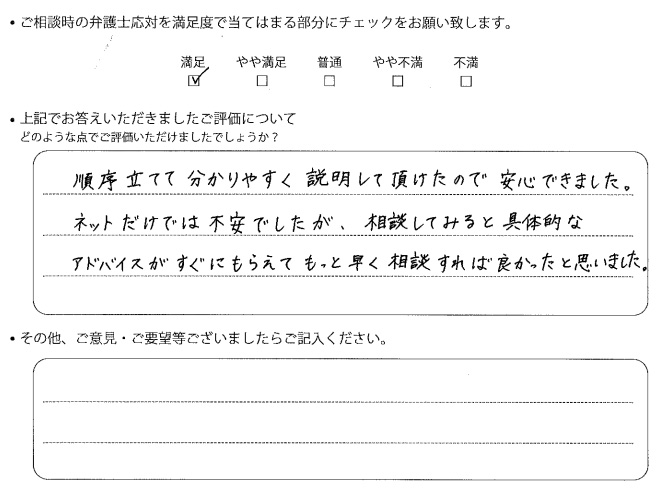 • ご相談時の弁護士応対を満足度で当てはまる部分にチェックをお願い致します。
満足 やや満足 普通 やや不満 不満
☑ ☐ ☐ ☐ ☐
• 上記でお答えいただきましたご評価について
どのような点でご評価いただけましたでしょうか？
順序立てて分かりやすく説明して頂けたので安心できました。
ネットだけでは不安でしたが、相談してみると具体的な
アドバイスがすぐにもらえてもっと早く相談すれば良かったと思いました。
• その他、ご意見・ご要望等ございましたらご記入ください。